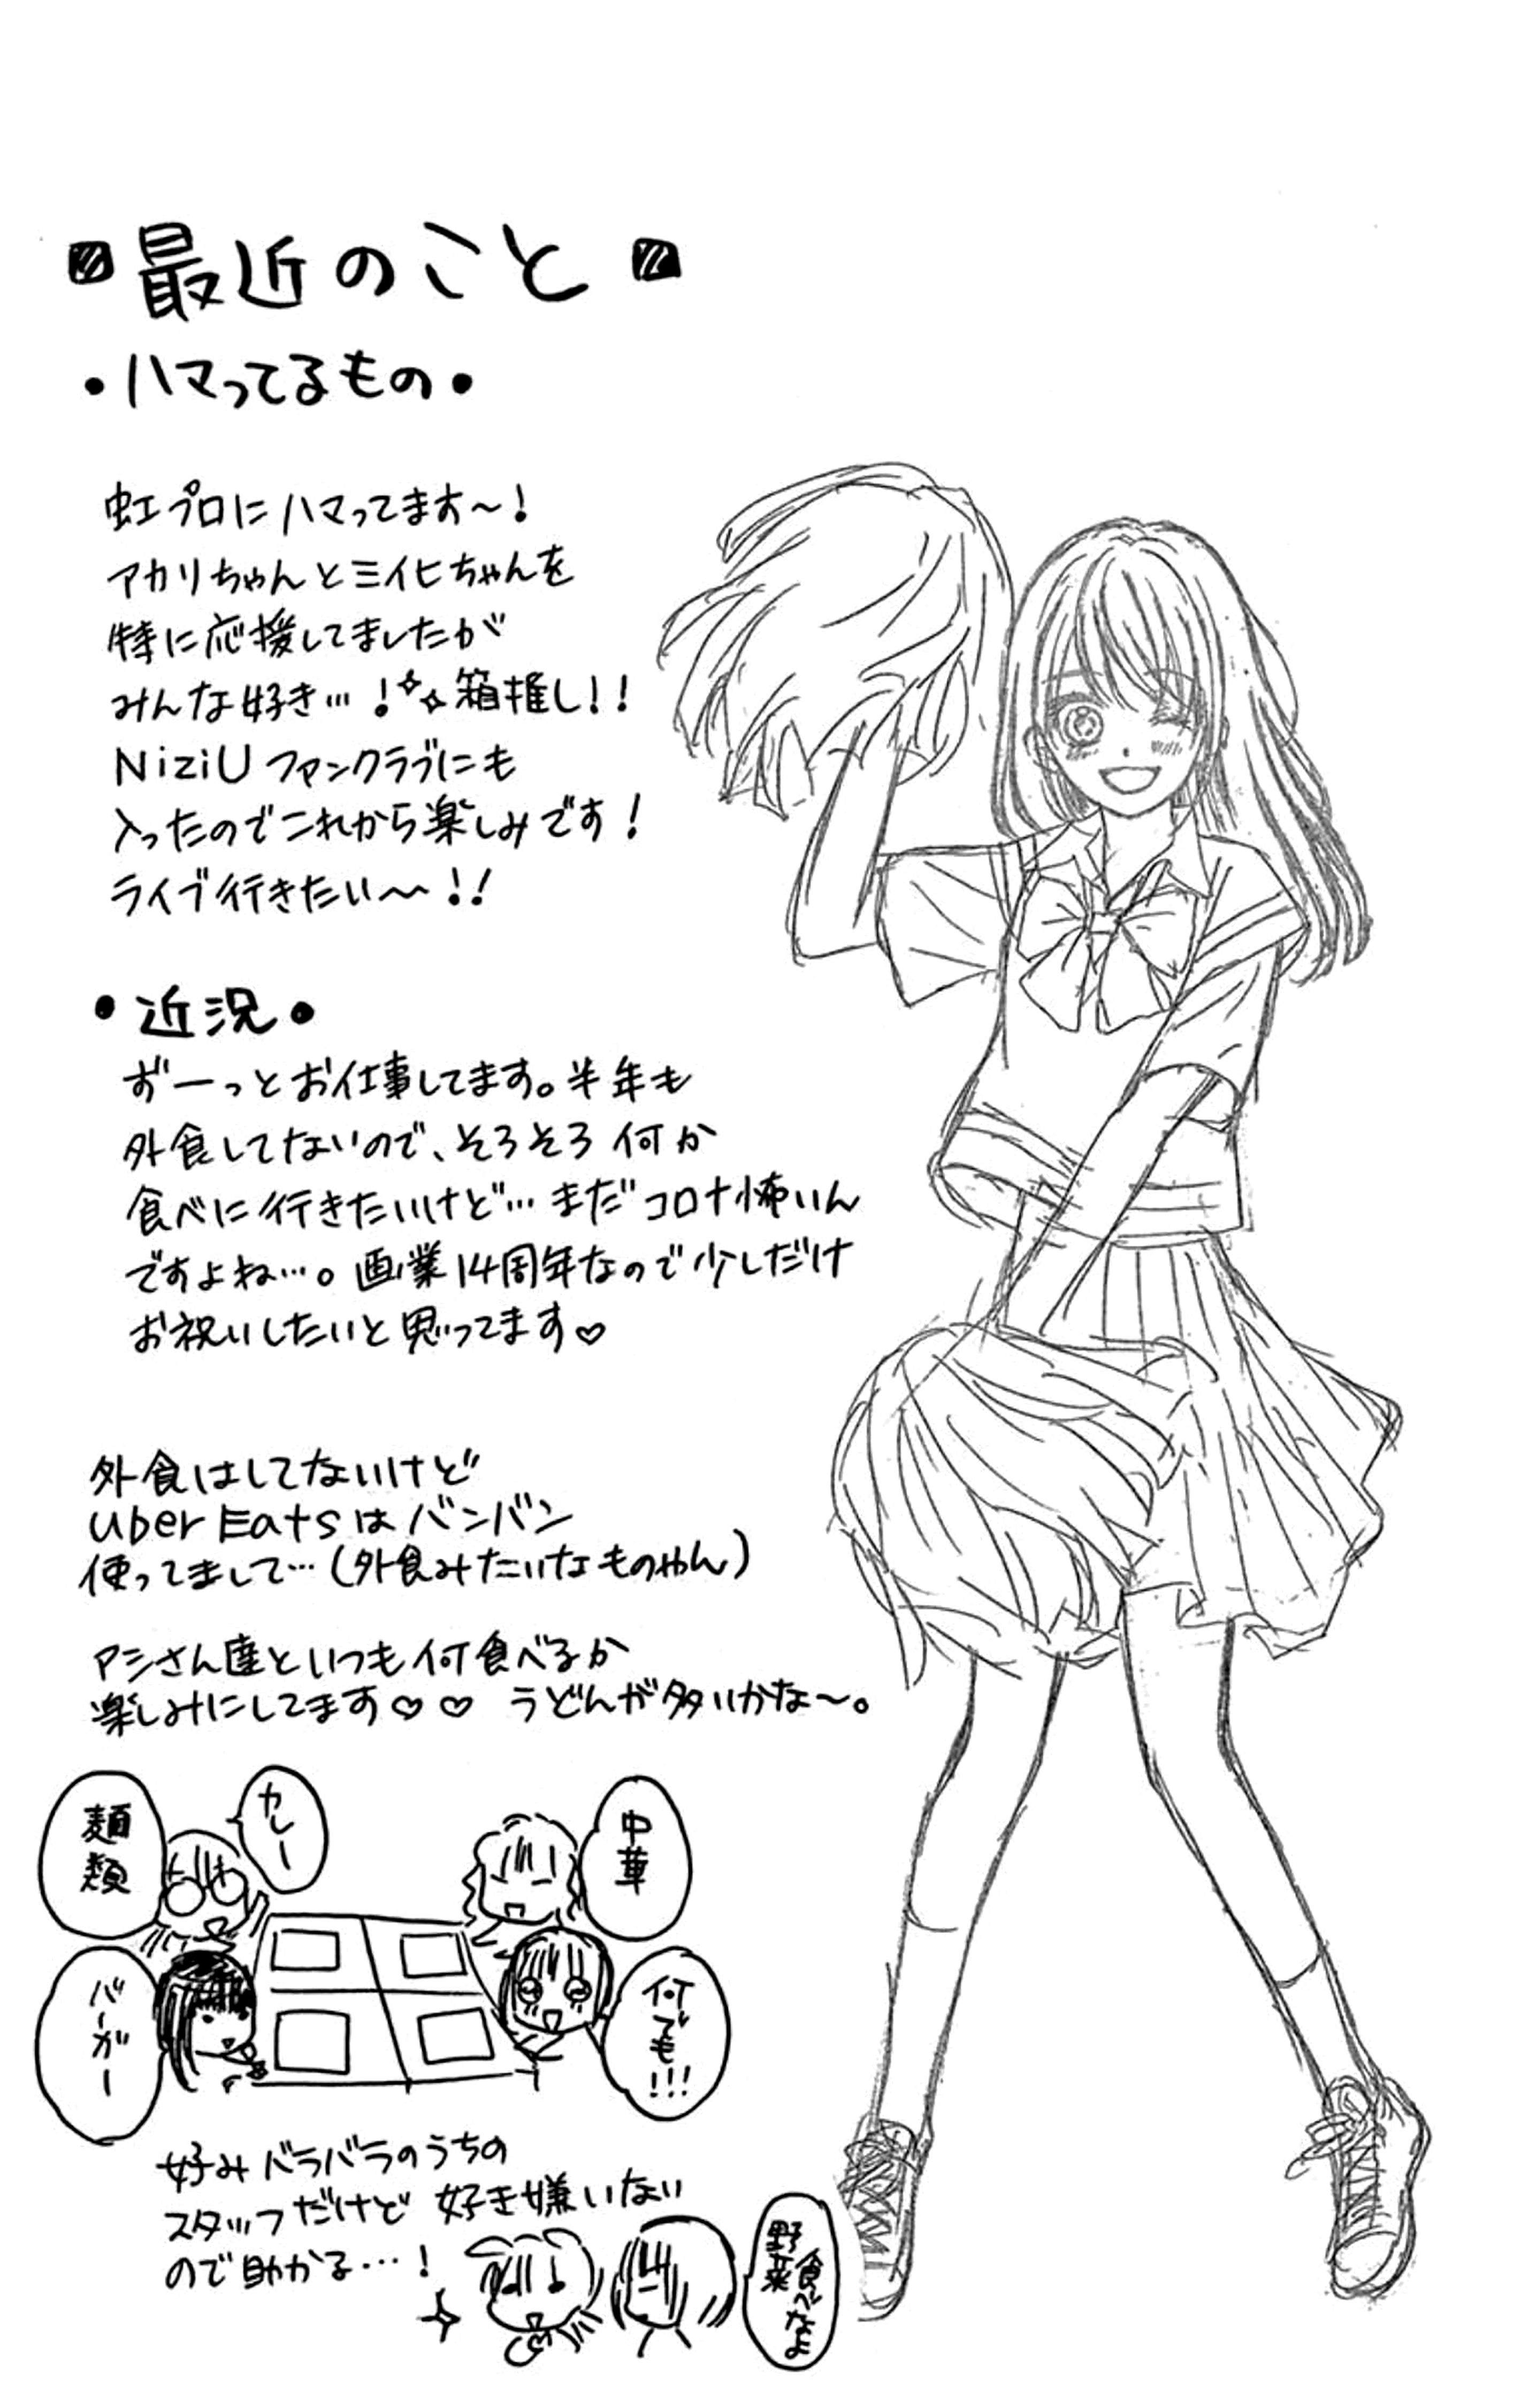 最近のこと
・ハマってるもの・
虹プロにハマってます〜!
アカリちゃんとミイヒちゃんを
特に応援してましたが
みんな好き…!箱推し!!
NiziUファンクラブにも
入ったのでこれから楽しみです!
ライブ行きたい〜!!
・近況・
ずーっとお仕事してます。半年も
外食してないので、そろそろ何か
食べに行きたいけど…まだコロナ怖いん
ですよね…。画業14周年なので少しだけ
お祝いしたいと思ってます♡
外食はしてないけど
Uber Eatsはバンバン
使ってまして…(外食みたいなものやん)
アシさん達といつも何食べるか
楽しみにしてます♡♡ うどんが多いかな〜。
麺類
カレー
中華
バーガー
何でも!!!
好みバラバラのうちの
スタッフだけど 好き嫌いない
ので助かる…!
野菜
食べなよ